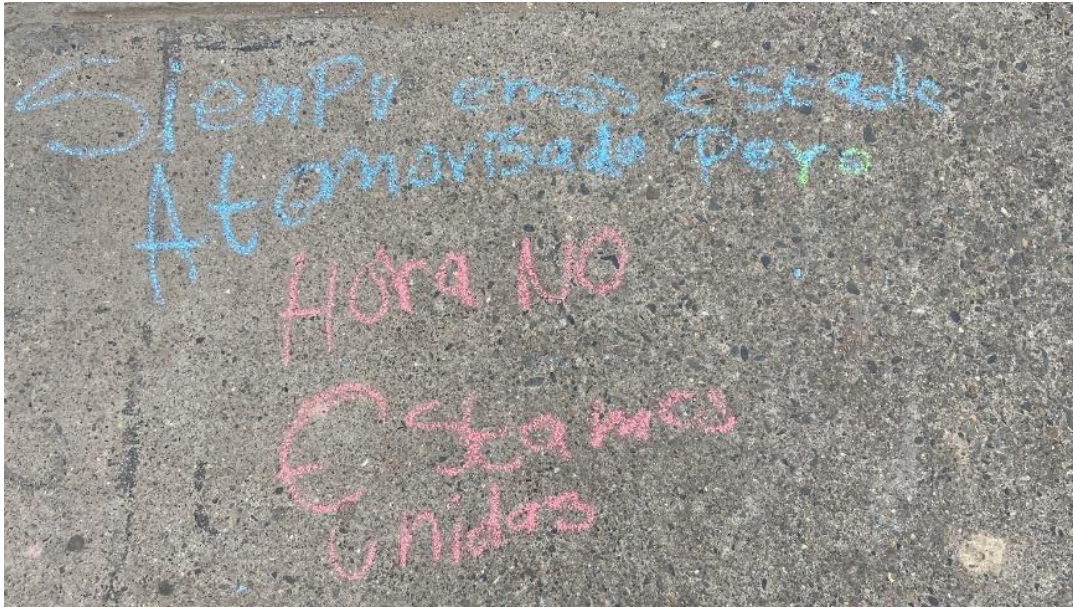 SIempr emos Estado
Atomorisado Pero
Hora NO
Estamos
unidas